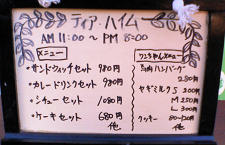 ティア・ハイム
AM 11:00 ~ PM 5:00
メニュー
・サンドウィッチセット 980円
・カレードリンクセット 980円
・シチューセット 1080円
・ケーキセット 680円
他
ワンちゃんメニュー
ハンバーグ
280円
ヤギミルク S 200円
M 250円
L 300円
クッキー 80~120円
他